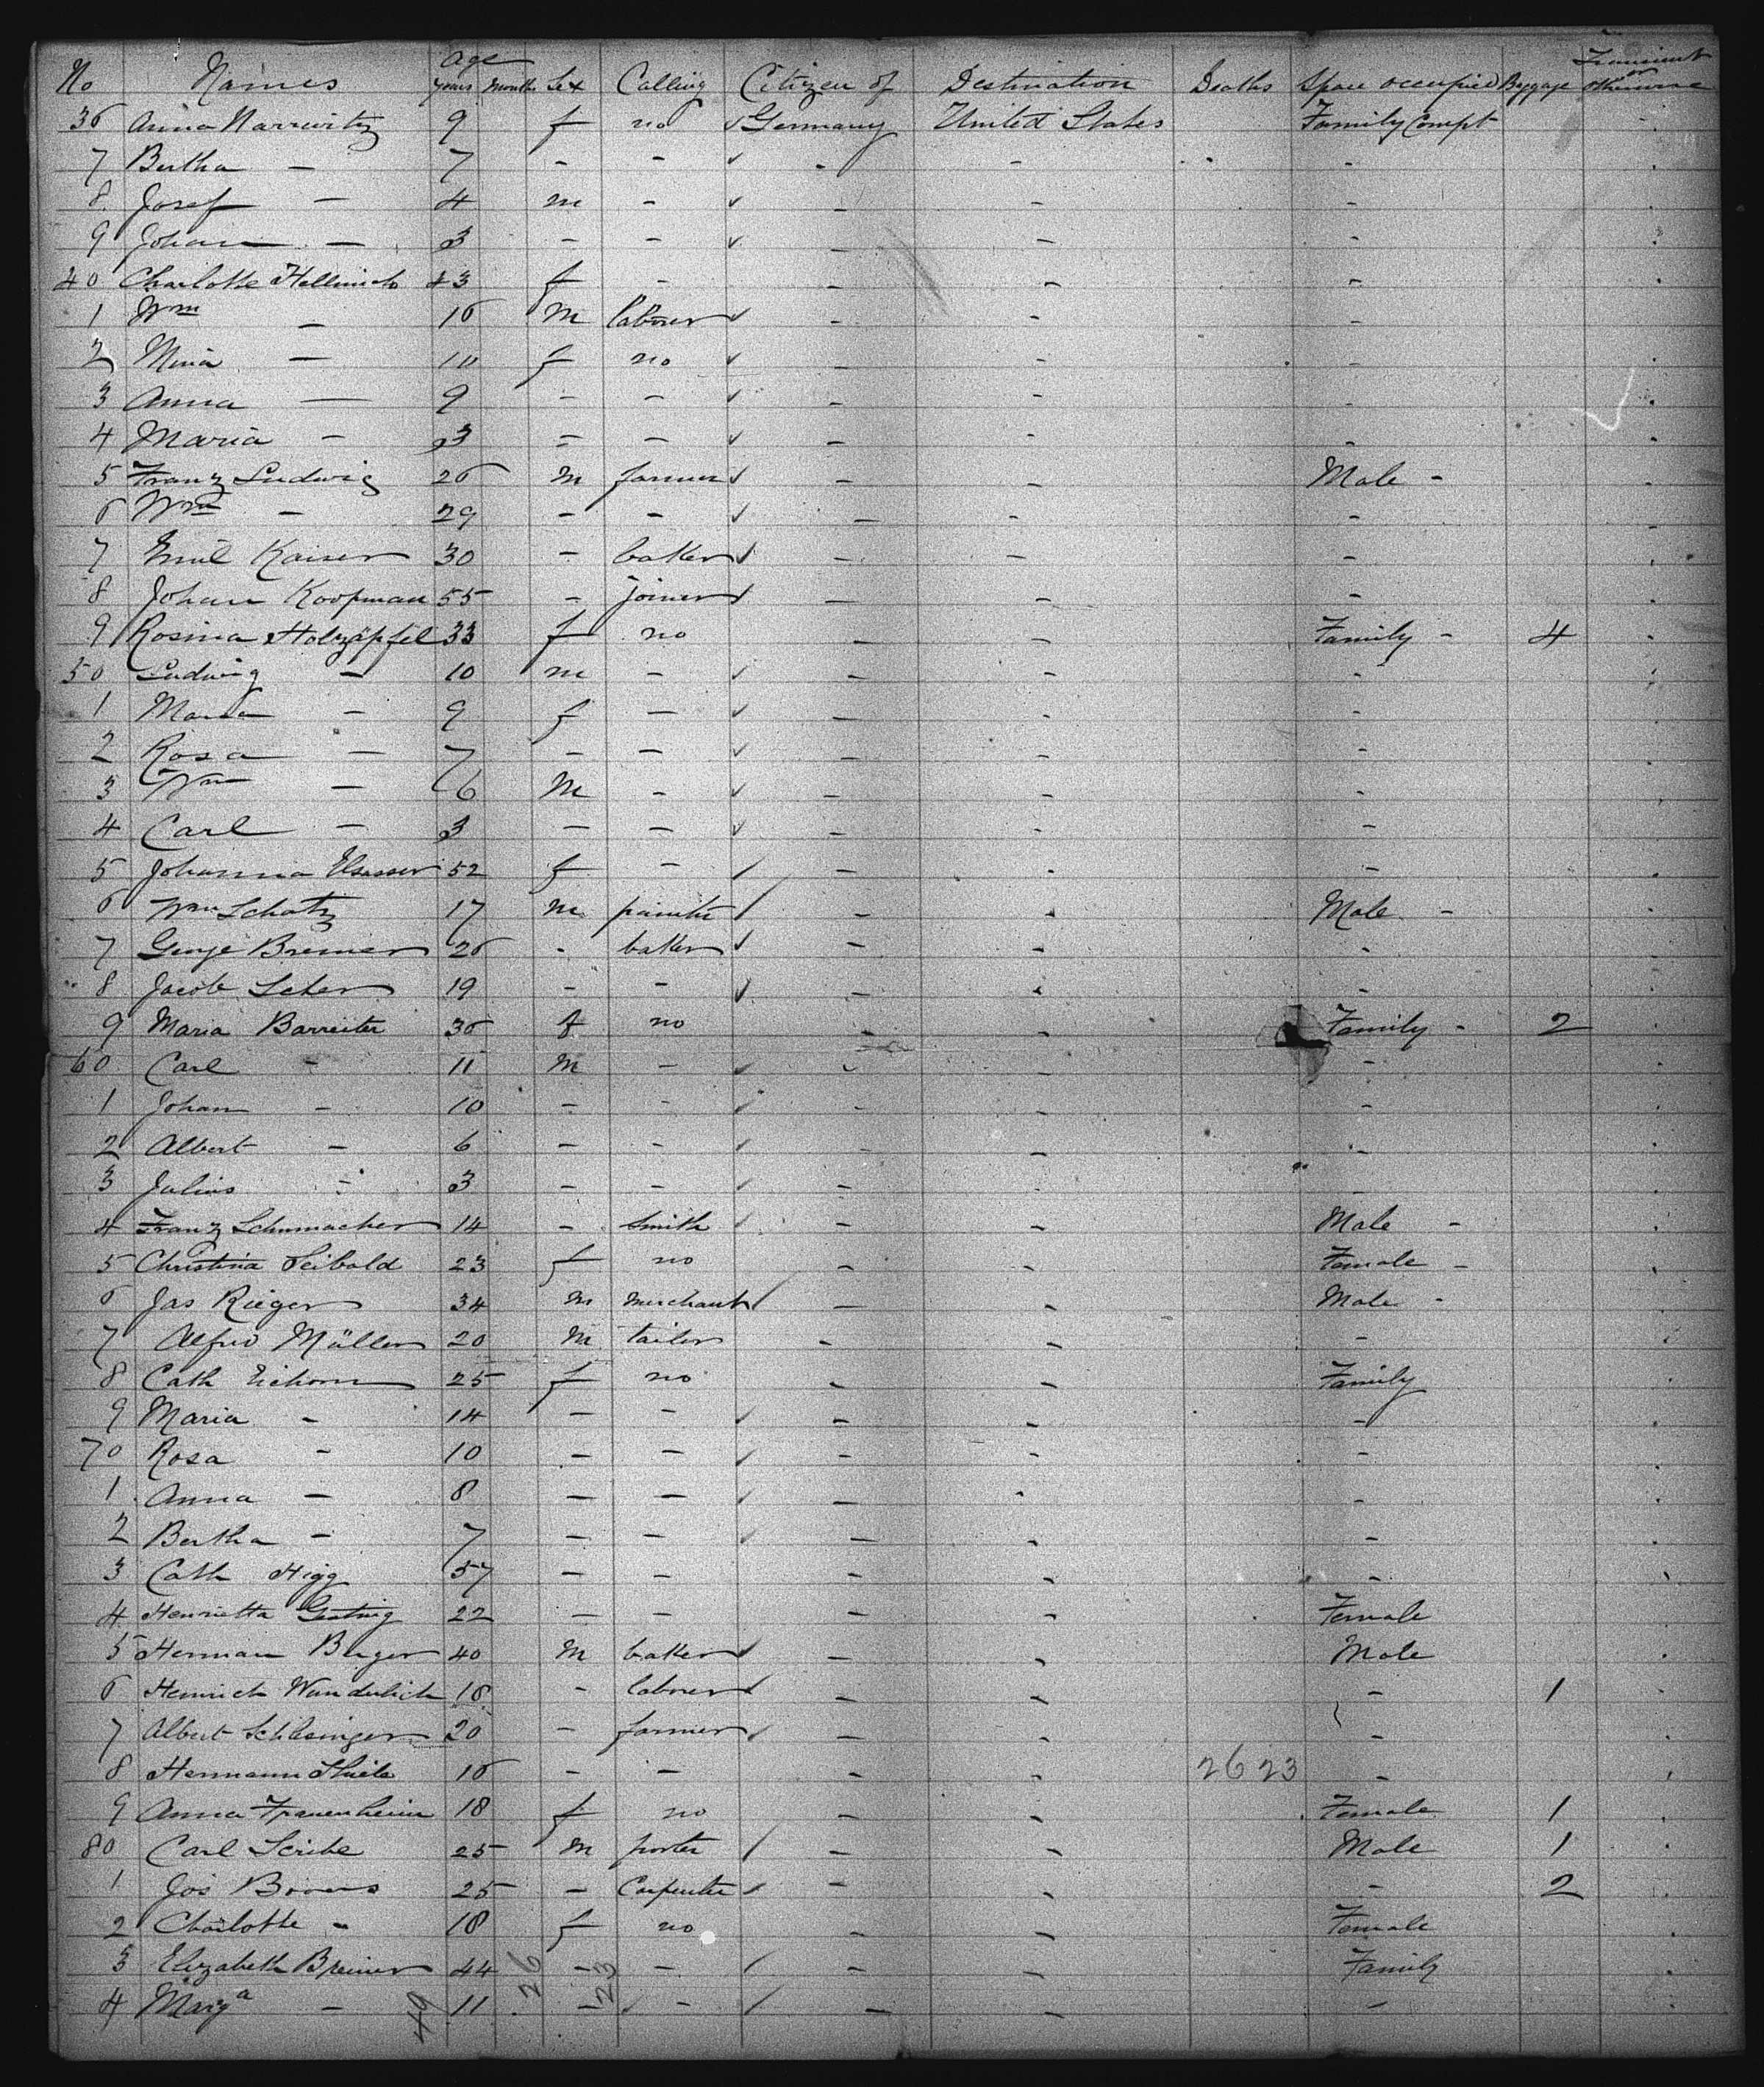 No Names Age years Months Sex Calling Citizen of Destination Deaths Space occupied Baggage Transient or otherwise
36 Anna Narrwitz 9 f no ✓ Germany United States Family Compt
7 Bertha - 7 - - ✓ - - -
8 Josef - 4 m - ✓ - - -
9 Johan - 3 - - ✓ - - -
40 Charlotte 43 f - - - -
1 Wm - 16 M laborer ✓ - - -
2 Mina - 10 f no ✓ - - -
3 Anna - 9 - - ✓ - - -
4 Maria - 3 - - ✓ - - -
5 Franz Ludwig 26 M farmer ✓ - - Male -
6 Wm - 29 - - ✓ - - -
7 Emil Kaiser 30 - baker ✓ - - -
8 Johan Koopman 55 - joiner ✓ - - -
9 Rosina Holzäpfel 33 f no - - Family - 4
50 Ludwig - 10 m - ✓ - - -
1 Maria - 9 f - ✓ - - -
2 Rosa - 7 - - ✓ - - -
3 Wm - 6 M - ✓ - - -
4 Carl - 3 - - ✓ - - -
5 Johanna Elsasser 52 f - ✓ - - -
6 Wm Schatz 17 m painter ✓ - - Male -
7 George Bremer 26 - baker ✓ - - -
8 Jacob 19 - - ✓ - - -
9 Maria Barreiter 36 f no - - Family - 2
60 Carl - 11 M - ✓ - - -
1 Johan - 10 - - ✓ - - -
2 Albert - 6 - - ✓ - - -
3 Julius - 3 - - ✓ - - -
4 Franz Schumacher 14 - Smith ✓ - - Male -
5 Christina Seibold 23 f no - - Female -
6 Jas Rieger 34 m merchant ✓ - - Male -
7 Alfred Müller 20 M tailor - - -
8 Cath Eichorn 25 f no - - Family
9 Maria - 14 - - ✓ - - -
70 Rosa - 10 - - ✓ - - -
1 Anna - 8 - - ✓ - - -
2 Bertha - 7 - - ✓ - - -
3 Cath Higg 57 - - - - -
4 Henrietta 22 - - - - Female
5 Herman Berger 40 M baker ✓ - - Male
6 Heinrich Wunderlich 18 - laborer ✓ - - - 1
7 Albert Schlesinger 20 - farmer ✓ - - -
8 Hermann Thiele 16 - - - - 2623 -
9 Anna Frauenheim 18 f no - - Female 1
80 Carl Scribe 25 M porter ✓ - - Male 1
1 Jos 25 - Carpenter ✓ - - - 2
2 Charlotte - 18 f no - - Female
3 Elizabeth Breiner 44 - - ✓ - - Family
4 Marga - 11 - - ✓ - - -
49 26 23